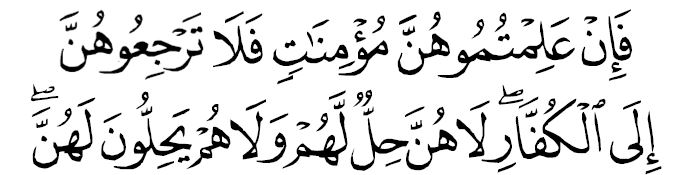 فَإِنْ عَلِمْتُمُوهُنَّ مُؤْمِنَٰتٍ فَلَا تَرْجِعُوهُنَّ
إِلَى ٱلْكُفَّارِۖ لَا هُنَّ حِلٌّ لَّهُمْ وَلَا هُمْ يَحِلُّونَ لَهُنَّۖ